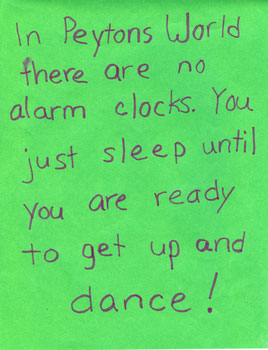 In Peytons World
there are no
alarm clocks. You
just sleep until
you are ready
to get up and
dance!